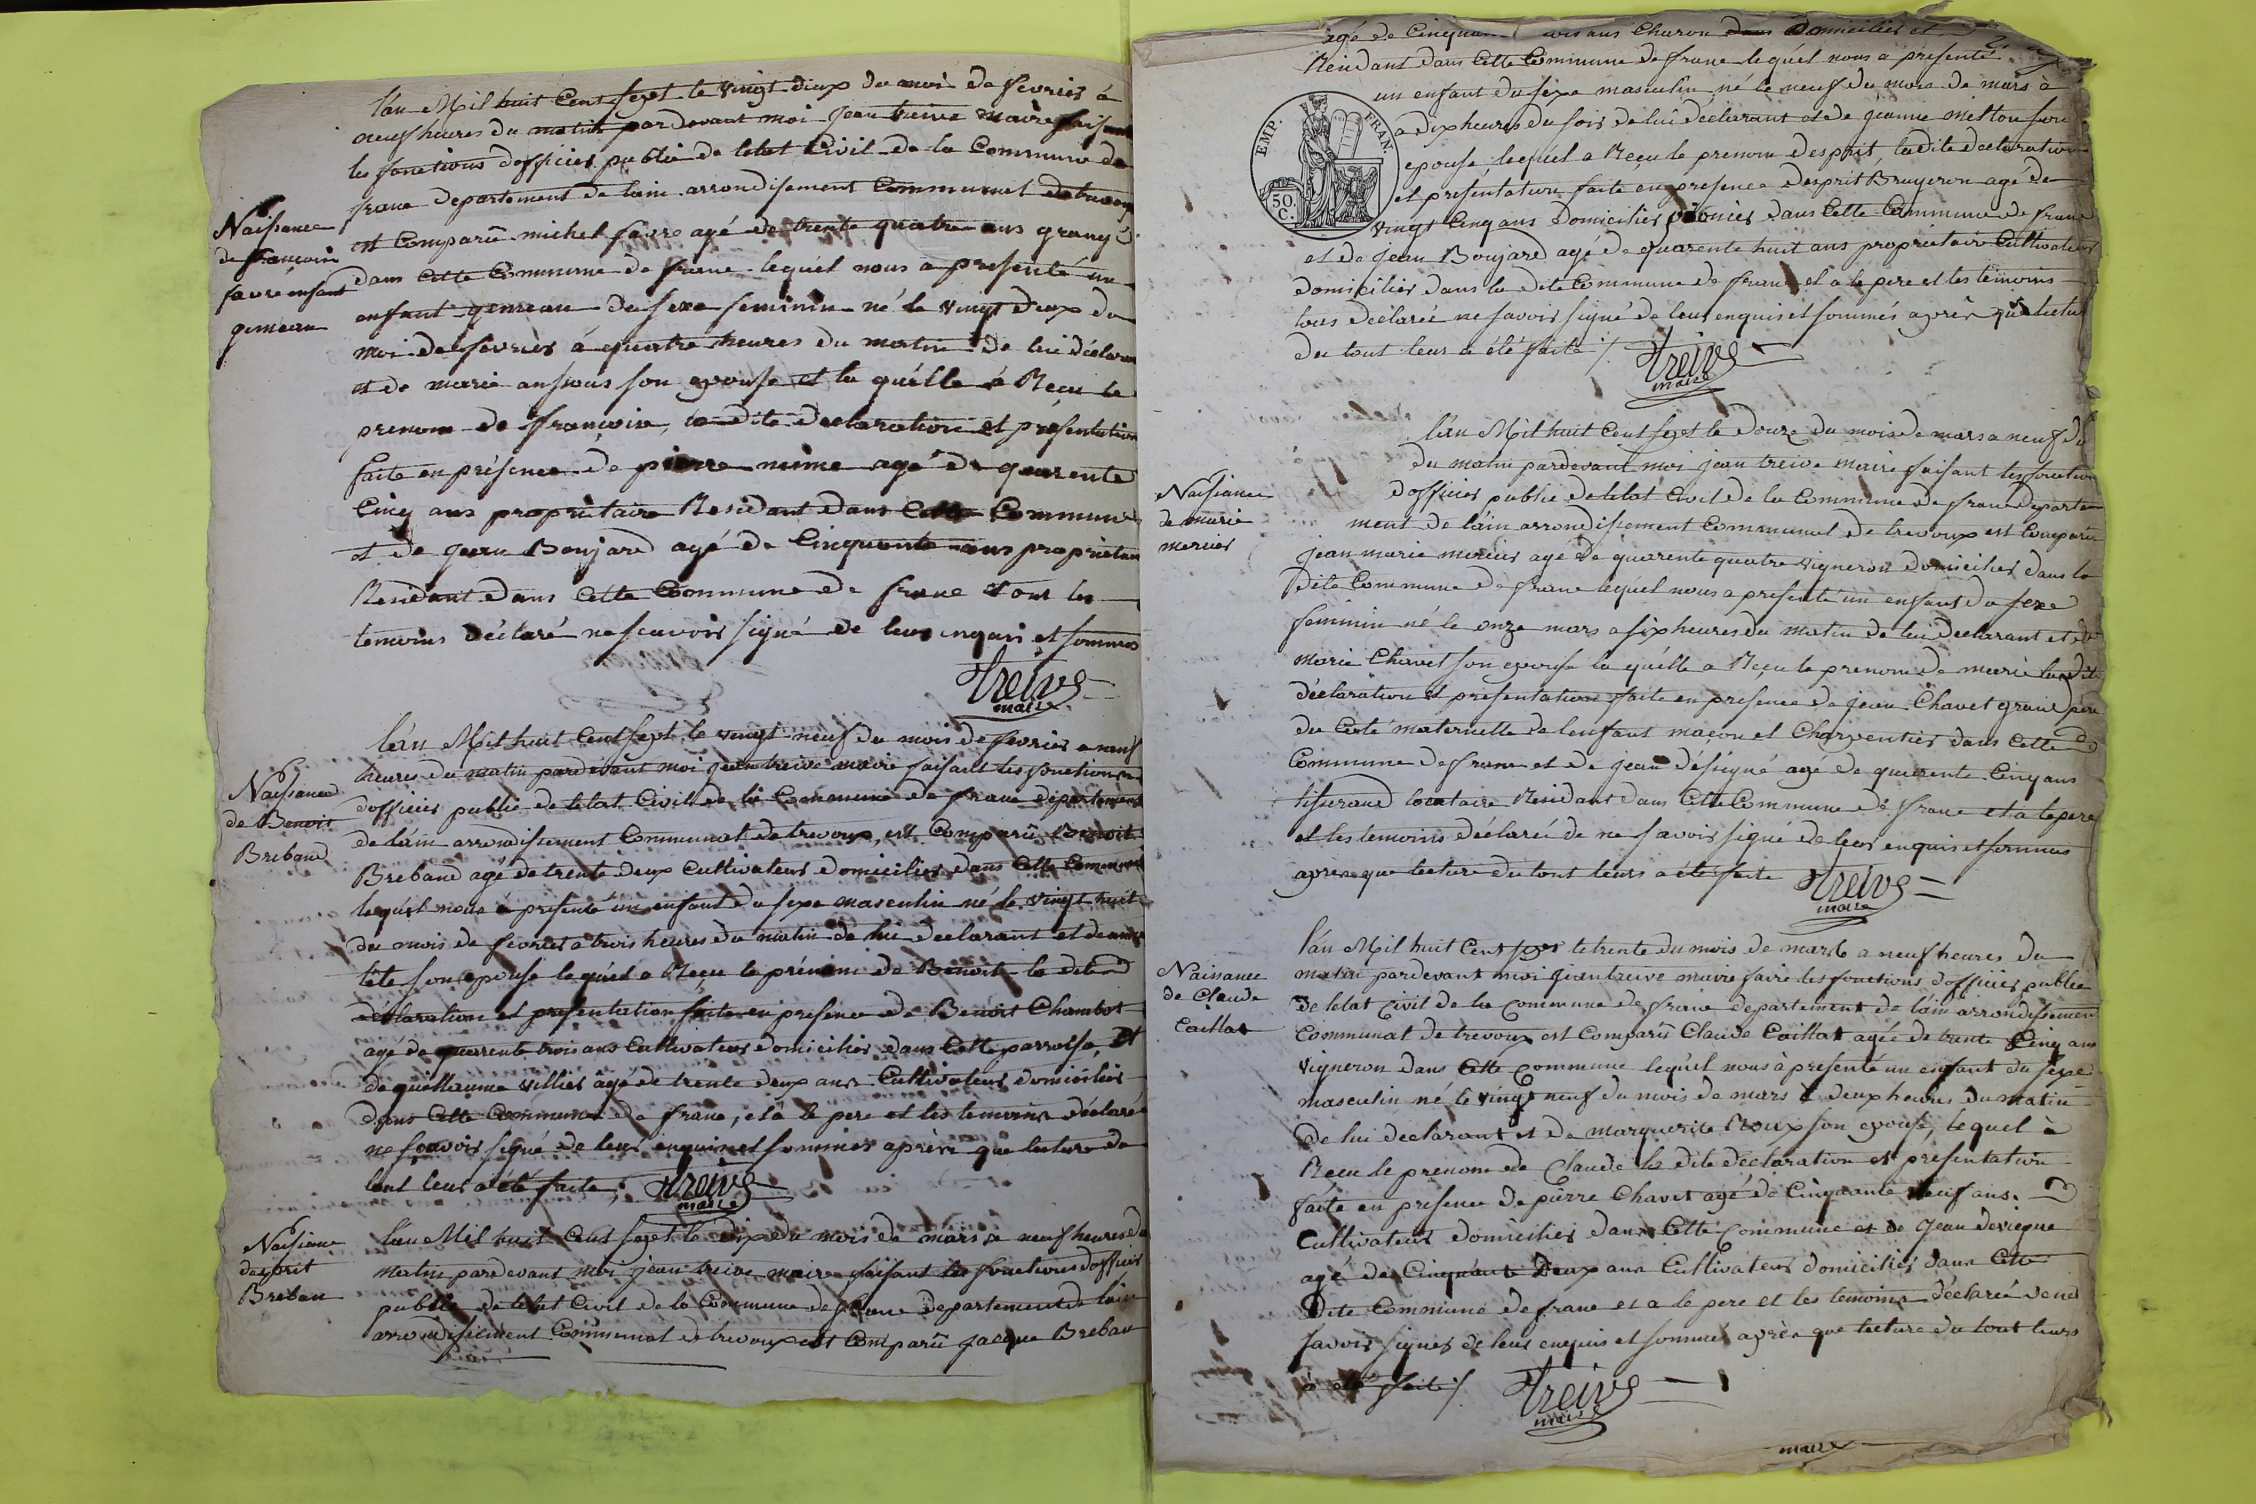 l'an Mil huit Cent sept le vingt deux du moi de fevrier à
neuf heures du matin pardevant moi jean treive maire faisant
les fonctions d'officier public de letat Civil de la Commune de
frane departement de lain arrondissement Communal de trevoux
est Comparû michel favre agé de trente quatre ans grangé
Naissance
de françoise
favre enfant
gemeau
dans Cette Commune de frane lequel nous a presenté un
enfant gemeau du sexe feminin né le vingt deux du
moi de fevrier à quatre heures du matin de lui déclarant
et de marie son epouse et la quélle a Reçu le
prenom de françoise, la dite declaration et présentation
faite en présence de pierre mime agé de quarente
Cinq ans propriétaire Residant dans Cette Commune
et de jean Boujard agé de Cinquante ans proprietaire
Residant dans Cette Commune de frane tout les
temoins déclaré ne scavoir signé de leur enquis et sommés
treive
maire
l'an Mil huit Cent sept le vingt neuf du mois de fevrier a neuf
heures du matin pardevant moi jean treive maire faisant les fonctions
Naissance
de Benoit
Breband
d'officier public de letat Civil de la Commune de frane departement
de lain arrondissement Communal de trevoux, est Comparû Benoit
Breband agé de trente deux cultivateur domicilier dans Cette Commune
lequel nous à presenté un enfant du sexe masculin né le vingt huit
du mois de fevrier a trois heures du matin de lui declarant et de
tête son epouse lequel a Reçu le prénom de Benoit la dite
déclaration et presentation faite en presence de Benoit Chambot
agé de quarente trois ans Cultivateur domicilier dans Cette parroisse, Et
de guillaume villier âgé de trente deux ans Cultivateur domicilier
dans Cette Commune de frane, et à le pere et les temoins déclaré
ne sçavoir signé de leur enquis et sommés après que lecture du
tout leur a été faite,
treive
maire
Naissance
desprit
Breban
l'an Mil huit Cent sept le dix du mois de mars a neuf heures du
matin pardevant moi jean treive maire faisant les fonctions d'officier
public de letat Civil de la Commune de frane departement de lain
arrondissement Communal de trevoux est Comparû jacque Breban
agé de Cinquante trois ans Charon dans domicilier et
Residant dans Cette Commune de frane lequel nous a presenté
un enfant du sexe masculin, né le neuf du mois de mars à
EMP. FRAN.
50.
C.
a dix heures du soir de lui déclarant et de jeanne mitton sure
epouse, lequel a Reçu le prenom d'esprit, la dite declaration
et presentation faite en presence desprit Bruyeron agé de
vingt Cinq ans domicilier dans Cette Commune de frane
et de jean Boujard agé de quarente huit ans proprietaire Cultivateur
domicilier dans la dite Commune de frane et a le pere et les témoins
tous déclaré ne savoir signé de leur enquis et sommés après que lecture
du tout leur a été faite /.
treive
maire
l'an Mil huit Cent sept le douze du mois de mars a neuf du
du matin pardevant moi jean treive maire faisant les fonction
Naissance
de marie
mercier
d'officier public de letat Civil de la Commune de frane departe
ment de lain arrondissement Communal de trevoux est Comparû
jean marie mercier agé de quarente quatre vigneron domicilier dans la
dite Commune de frane lequel nous a presenté un enfant du sexe
feminin né le onze mars a six heures du matin de lui declarant et de
marie Chavet son epouse la quélle a Reçu le prenom de marie la dit
déclaration et presentation faite en presence de jean Chavet grand père
du Coté maternelle de lenfant maçon et Charpentier dans Cette
Commune de frane et de jean désigné agé de quarente Cinq ans
tisserand locataire Residant dans Cette Commune de frane et a le pere
et les temoins déclaré de ne savoir signé de leur enquis et sommés
après que lecture du tout leurs a été faite
treive
maire
Naissance
de Claude
Caillat
l'an Mil huit Cent sept le trente du mois de mars a neuf heures du
matin pardevant moi jean treive maire faire les fonctions d'officier public
de letat Civil de la Commune de frane departement de lain arrondissement
communal de trevoux est Comparû Claude Caillat agée de trante Cinq ans
vigneron dans Cette Commune lequel nous à presenté un enfant du sexe
masculin né le vingt neuf du mois de mars à deux heures du matin
de lui declarant et de marguerite Roux son epouse, lequel à
Reçu le prenom de Claude la dite déclaration et présentation
faite en presence de pierre Chavet agé de Cinquante neuf ans.
Cultivateur domicilier dans Cette Commune et de jean devigne
agé de Cinquante deux ans Cultivateur domicilier dans Cette
dite Commune de frane et a le pere et les temoins déclaré de ne
savoir signer de leur enquis et sommés après que lecture du tout leurs
a eté faite /.
treive
maire
maire